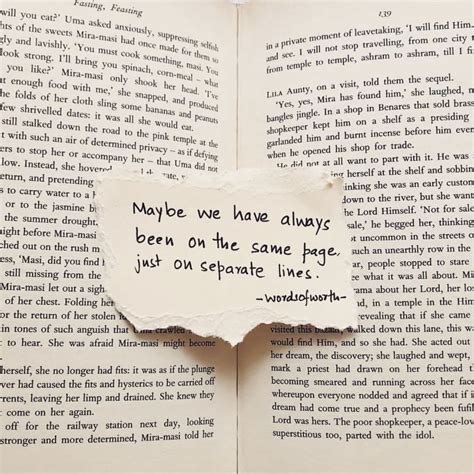 Fasting, Feasting
will you eat?' Uma asked anxiously, suppressing selfish
of the sweets Mira-masi had once made them so
gly and lavishly. 'You must cook something, masi. You
look strong. I'll bring you spinach, corn-meal – what
you like?' Mira-masi only shook her head. 'I've
enough food with me,' she snapped, and produced
the folds of her cloth sling some bananas and peanuts
few shrivelled dates: it was all she would eat.
still stalked down the road to the pink temple at the
t with such an air of determined privacy – as if defying
ers to stop her or accompany her – that Uma did not
down. Instead, she hovered
return, and pretending
s to carry water to a h
the summer drought.
ched out on the rush m
'Masi, did you find
still missing from the
of her chest. Folding
for the return of the stolen
in tones of such anguish that Uma crawled
to hear. She was afraid Mira-masi might become
herself, she no longer had fits: it was as if the plunge
ver had cured the fits and hysterics to be carried off
rrents, leaving her limp and drained. She knew they
come on again.
off for the railway station next day, looking
stronger and more determined, Mira-masi told
139
in a private moment of leavetaking, 'I will find Him
and see. I will not stop travelling, from one city
from temple to temple, ashram to ashram, till I
LILA Aunty, on a visit, told them the sequel.
'Yes, yes, Mira has found him,' she laughed,
and bangles. In a shop in Benares odd that sold brass
shopkeeper kept him on a shelf as a presiding
garlanded him and burnt incense before him
when he opened his shop for trade.
He did not at all want to part with
ing herself at the shelf and sobbing
she was inviting an early custom
the Lord Himself. 'Not for sale
t uncommon in the streets of
on this was so extreme
at, people stopped to stare
see what it was all about. Mira
hat Mira was a
claimed her Lord, and it
in a temple, in a dream
ountains, where she was
visited this bazaar, walked down
would find Him, and so she had. She acted out
her dream, the discovery; she laughed and wept,
mark a priest had drawn on her forehead
becoming smeared and running across her face
whereupon everyone nodded and cheered
that a dream had come true and a prophecy been fulfi
Lord was hers. The poor shopkeeper, a peace-lov
superstitious too, parted with the idol.
Maybe we have always
been on the same page,
just on separate lines.
-wordsofworth-